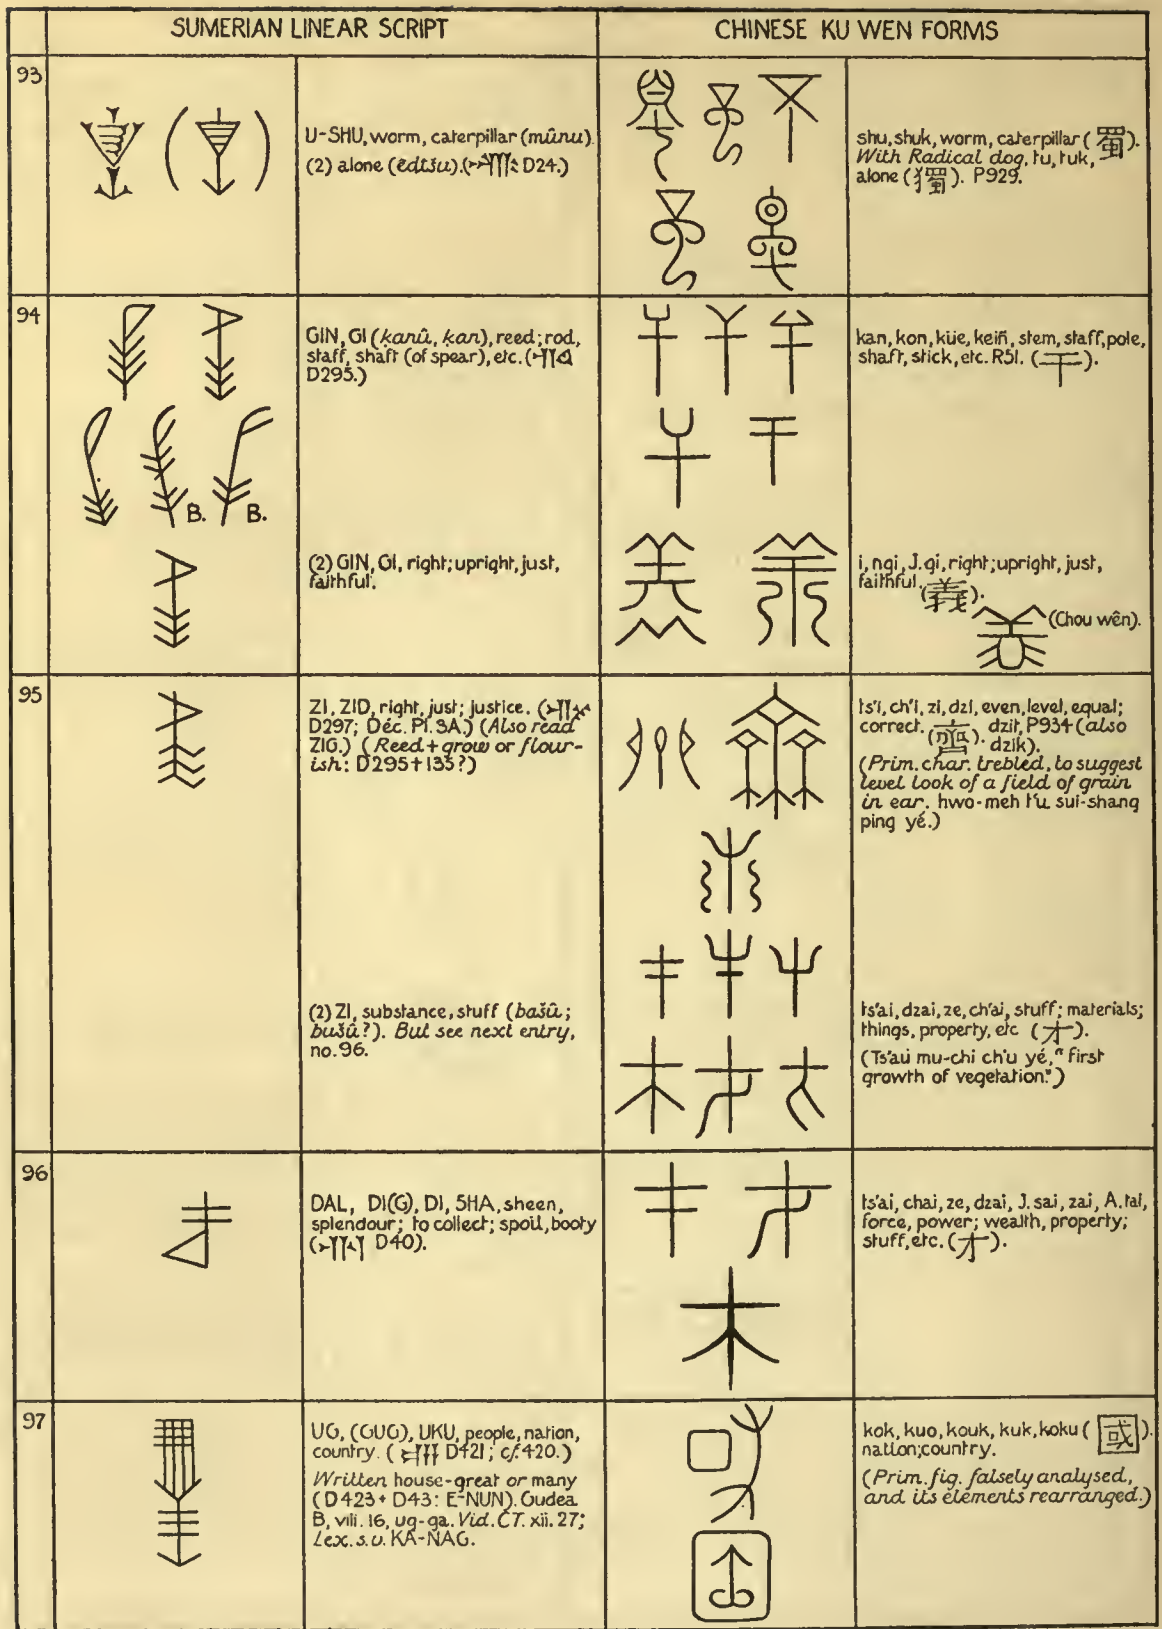 SUMERIAN LINEAR SCRIPT
CHINESE KU WEN FORMS
93
U-SHU, worm, caterpillar (mûnu).
(2) alone (êdtšu). ( D24.)
shu, shuk, worm, caterpillar (蜀).
With Radical dog, tu, tuk,
alone (獨). P929.
94
GIN, GI (ḳanû, ḳan), reed; rod,
staff, shaft (of spear), etc. (
D295.)
B.
B.
kan, kon, küe, keiñ, stem, staff, pole,
shaft, stick, etc. R51. (干).
(2) GIN, GI, right; upright, just,
faithful.
i, ngi, J. gi, right; upright, just,
faithful. (義).
(Chou wên).
95
ZI, ZID, right, just; justice. (
D297; Déc. Pl. 3A.) (Also read
ZIG.) (Reed + grow or flour-
ish: D295+135?)
ts'i, ch'i, zi, dzi, even, level, equal;
correct. (齊). dzit, P934 (also
dzik).
(Prim. char. trebled, to suggest
level look of a field of grain
in ear. hwo-meh t'u sui-shang
ping yé.)
(2) ZI, substance, stuff (bašû;
bušû?). But see next entry,
no. 96.
ts'ai, dzai, ze, ch'ai, stuff; materials;
things, property, etc (才).
(Ts'au mu-chi ch'u yé, "first
growth of vegetation.")
96
DAL, DI(G), DI, SHA, sheen,
splendour; to collect; spoil, booty
( D40).
ts'ai, chai, ze, dzai, J. sai, zai, A. tai,
force, power; wealth, property;
stuff, etc. (才).
97
UG, (GUG), UKU, people, nation,
country. ( D421; cf. 420.)
Written house-great or many
(D423+ D43: E-NUN). Gudea
B, viii. 16, ug-ga. Vid. CT. xii. 27;
Lex. s.v. KA-NAG.
kok, kuo, kouk, kuk, koku (國).
nation; country.
(Prim. fig. falsely analysed,
and its elements rearranged.)